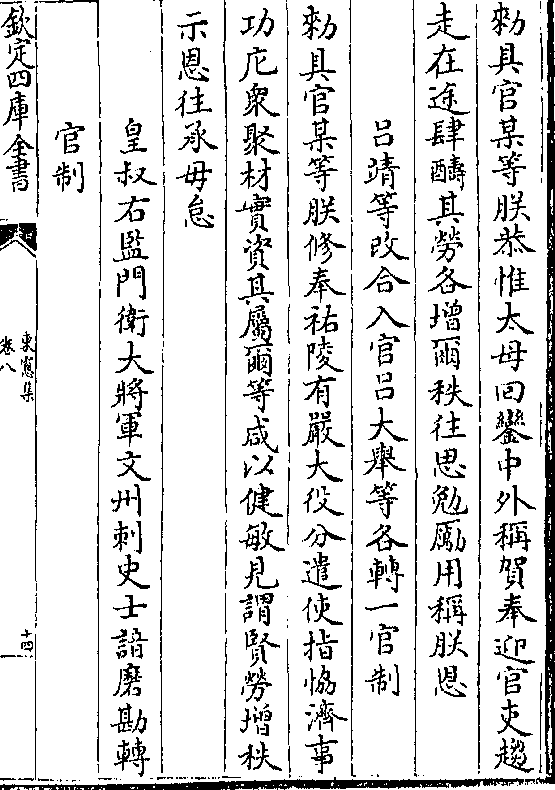 勑具官某等朕恭惟太母回鑾中外稱賀奉迎官吏趨
走在途肆醻其勞各增爾秩往思勉厲用稱朕恩
呂靖等改合入官呂大舉等各轉一官制
勑具官某等朕修奉祐陵有嚴大役分遣使指恊濟事
功庀衆聚材實資其屬爾等咸以健敏見謂賢勞增秩
示恩往承毋怠
皇叔右監門衛大將軍文州刺史士諳磨勘轉
官制
欽定四庫全書
東窻集
卷八
十四